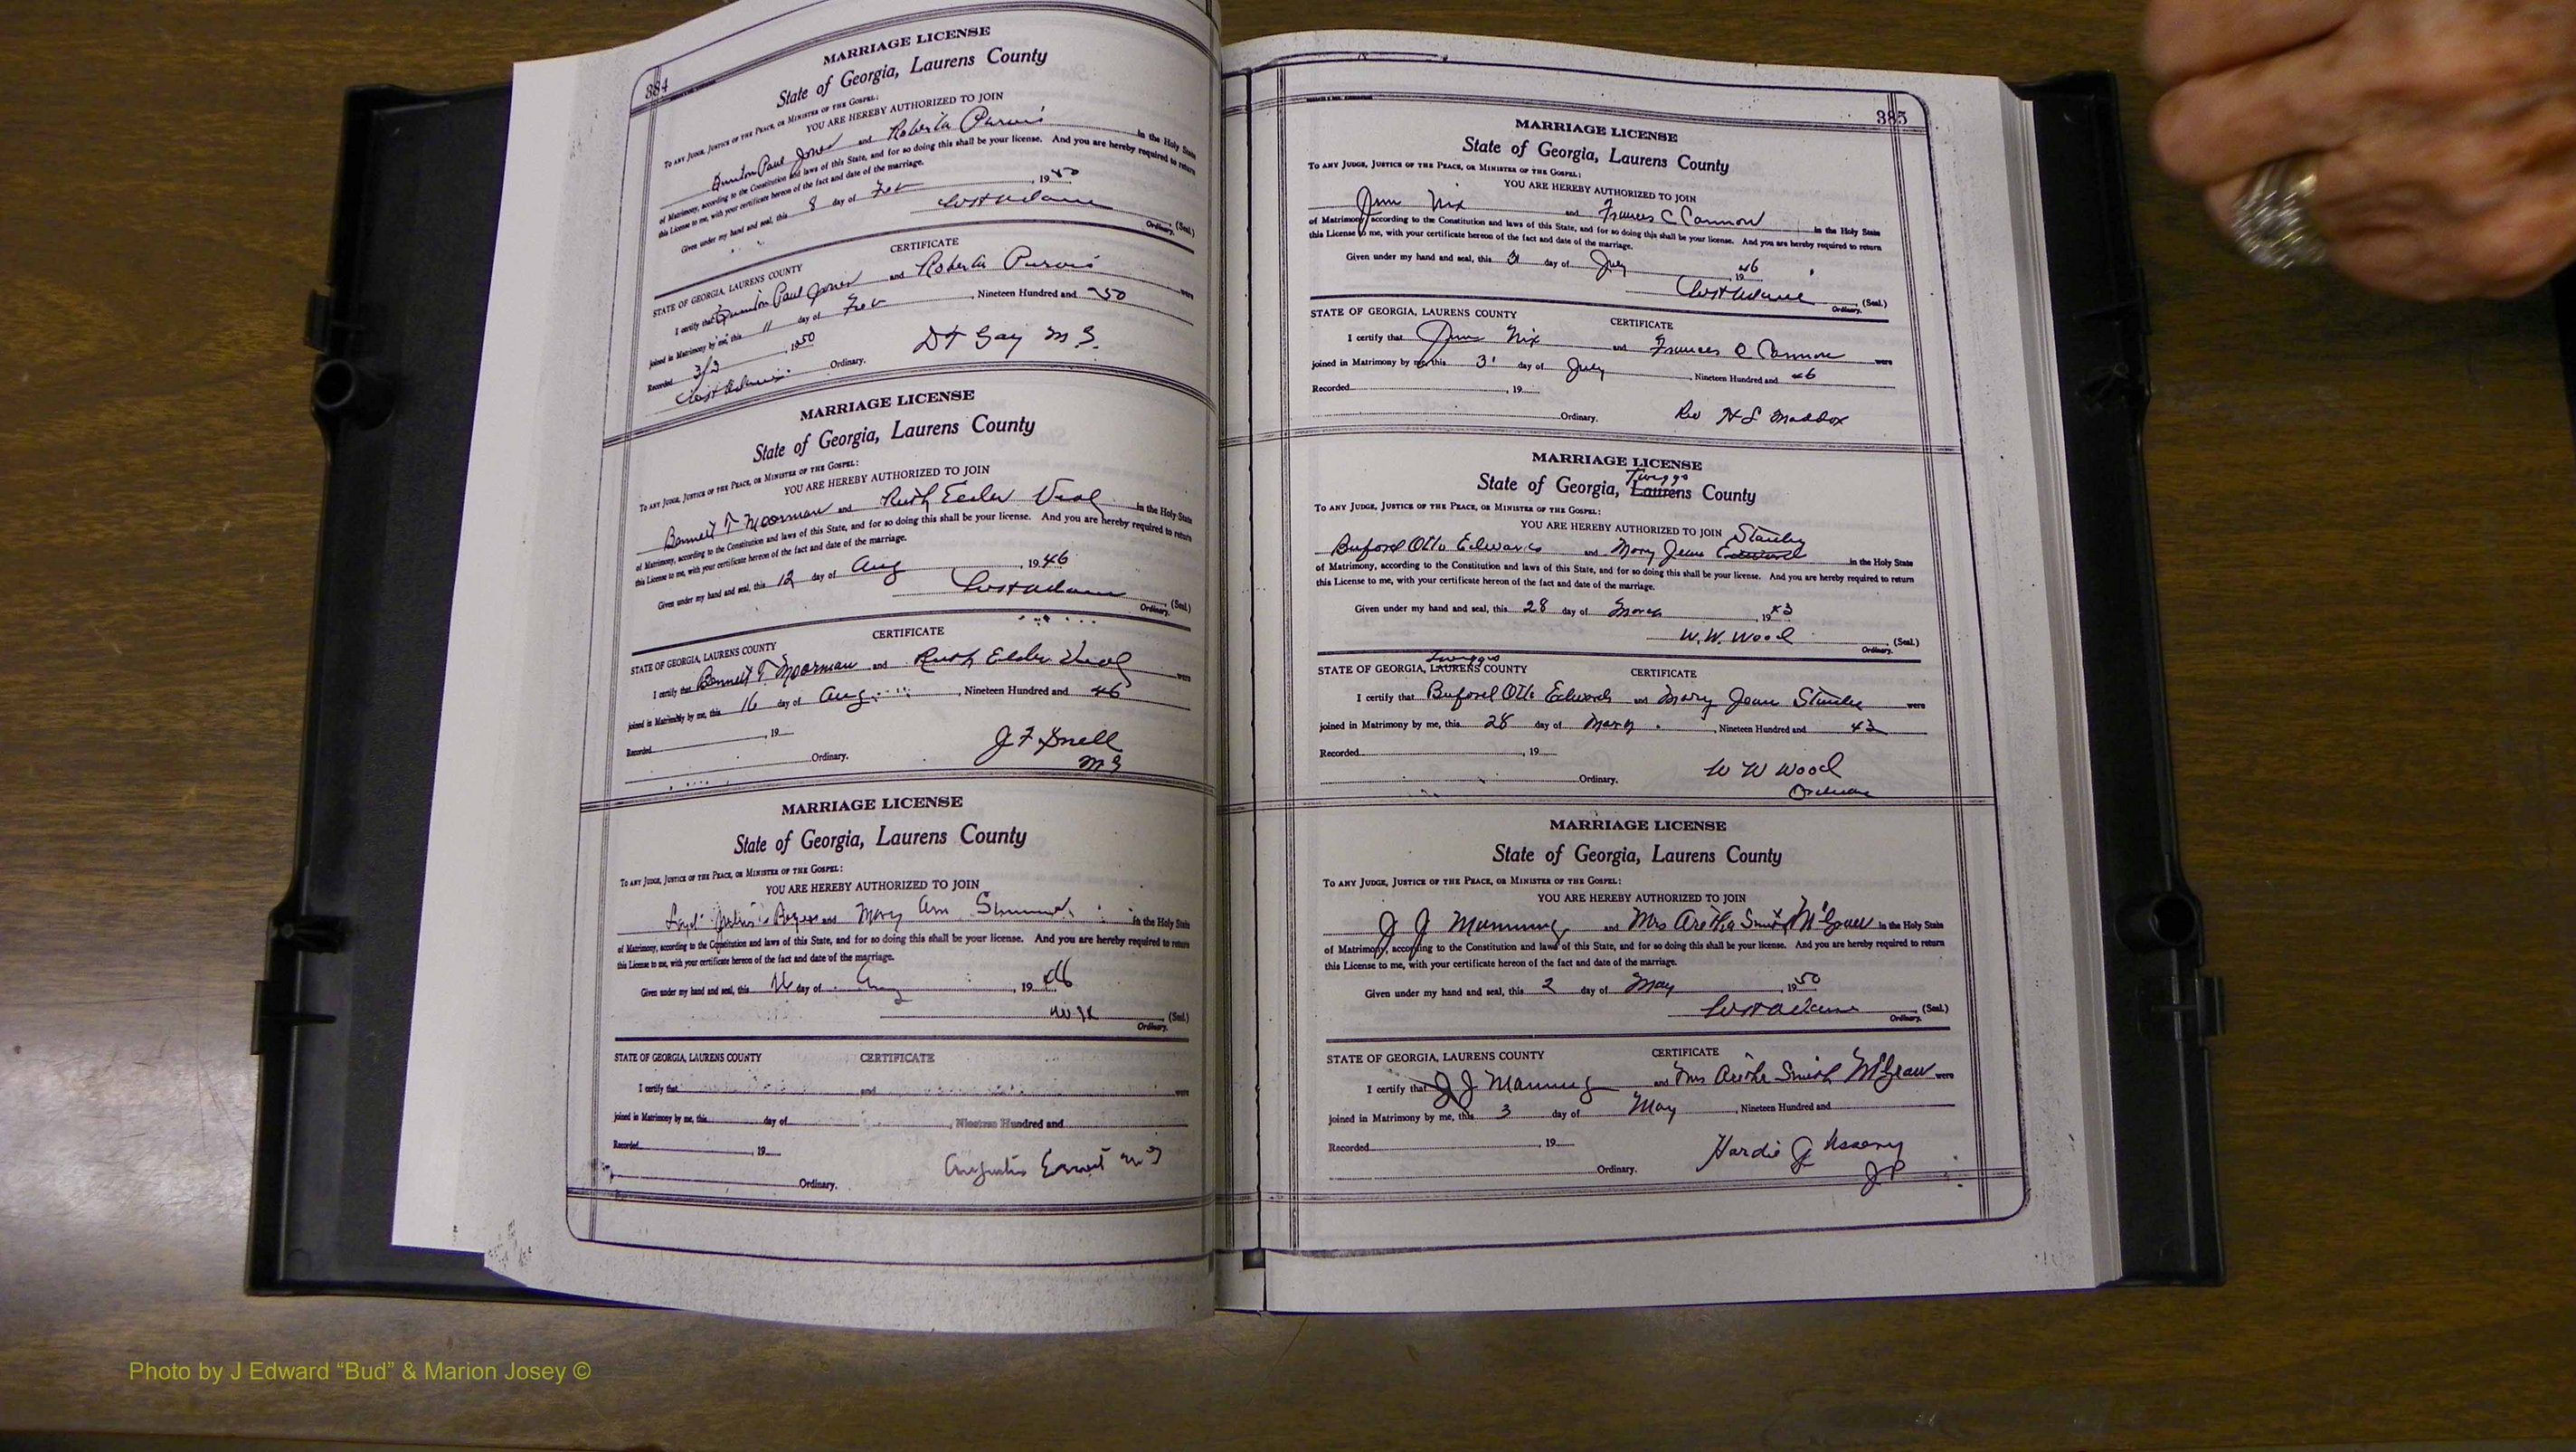 384
MARRIAGE LICENSE
State of Georgia, Laurens County
To any Judge, Justice of the Peace, or Minister of the Gospel:
YOU ARE HEREBY AUTHORIZED TO JOIN
Paul Jones and Roberta Purvis in the Holy State
of Matrimony, according to the Constitution and laws of this State, and for so doing this shall be your license. And you are hereby required to return
this License to me, with your certificate hereon of the fact and date of the marriage.
Given under my hand and seal, this 8 day of Feb, 1950
(Seal.)
Ordinary.
CERTIFICATE
STATE OF GEORGIA, LAURENS COUNTY
I certify that Paul Jones and Roberta Purvis were
joined in Matrimony by me, this 11 day of Feb, Nineteen Hundred and 50
Recorded 3/3, 1950
Ordinary.
D T Gay M G.
MARRIAGE LICENSE
State of Georgia, Laurens County
To any Judge, Justice of the Peace, or Minister of the Gospel:
YOU ARE HEREBY AUTHORIZED TO JOIN
Bennett T Moorman and Ruth Veal in the Holy State
of Matrimony, according to the Constitution and laws of this State, and for so doing this shall be your license. And you are hereby required to return
this License to me, with your certificate hereon of the fact and date of the marriage.
Given under my hand and seal, this 12 day of Aug, 1946
(Seal.)
Ordinary.
CERTIFICATE
STATE OF GEORGIA, LAURENS COUNTY
I certify that Bennett T. Moorman and Ruth Elder Veal were
joined in Matrimony by me, this 16 day of Aug, Nineteen Hundred and 46
Recorded, 19
Ordinary.
J F Snell
M G
MARRIAGE LICENSE
State of Georgia, Laurens County
To any Judge, Justice of the Peace, or Minister of the Gospel:
YOU ARE HEREBY AUTHORIZED TO JOIN
Rogers and Mary Ann in the Holy State
of Matrimony, according to the Constitution and laws of this State, and for so doing this shall be your license. And you are hereby required to return
this License to me, with your certificate hereon of the fact and date of the marriage.
Given under my hand and seal, this 16 day of Aug, 1946
(Seal.)
Ordinary.
STATE OF GEORGIA, LAURENS COUNTY CERTIFICATE
I certify that and were
joined in Matrimony by me, this day of, Nineteen Hundred and
Recorded, 19
Ordinary.
385
MARRIAGE LICENSE
State of Georgia, Laurens County
To any Judge, Justice of the Peace, or Minister of the Gospel:
YOU ARE HEREBY AUTHORIZED TO JOIN
Jim Nix and Frances C Cannon in the Holy State
of Matrimony, according to the Constitution and laws of this State, and for so doing this shall be your license. And you are hereby required to return
this License to me, with your certificate hereon of the fact and date of the marriage.
Given under my hand and seal, this day of July 1946
(Seal.)
Ordinary.
STATE OF GEORGIA, LAURENS COUNTY
CERTIFICATE
I certify that Jim Nix and Frances C Cannon were
joined in Matrimony by me, this day of July, Nineteen Hundred and 46
Recorded, 19
Ordinary.
Rev H L Maddox
MARRIAGE LICENSE
Twiggs
State of Georgia, Laurens County
To any Judge, Justice of the Peace, or Minister of the Gospel:
YOU ARE HEREBY AUTHORIZED TO JOIN
Stanley
Buford Otto Edwards and Mary Jean Edward in the Holy State
of Matrimony, according to the Constitution and laws of this State, and for so doing this shall be your license. And you are hereby required to return
this License to me, with your certificate hereon of the fact and date of the marriage.
Given under my hand and seal, this 28 day of March, 1943
W. W. Wood (Seal.)
Ordinary.
Twiggs
STATE OF GEORGIA, LAURENS COUNTY CERTIFICATE
I certify that Buford Otto Edwards and Mary Jean Stanley were
joined in Matrimony by me, this 28 day of, Nineteen Hundred and 43
Recorded, 19
Ordinary.
W W Wood
Ordinary
MARRIAGE LICENSE
State of Georgia, Laurens County
To any Judge, Justice of the Peace, or Minister of the Gospel:
YOU ARE HEREBY AUTHORIZED TO JOIN
J J Manning and Mrs Aretha Smith McGraw in the Holy State
of Matrimony, according to the Constitution and laws of this State, and for so doing this shall be your license. And you are hereby required to return
this License to me, with your certificate hereon of the fact and date of the marriage.
Given under my hand and seal, this 2 day of May, 1950
(Seal.)
Ordinary.
STATE OF GEORGIA, LAURENS COUNTY CERTIFICATE
I certify that J J Manning and Mrs Aretha Smith McGraw were
joined in Matrimony by me, this 3 day of May, Nineteen Hundred and
Recorded, 19
Ordinary.
Hardie
JP
Photo by J Edward “Bud” & Marion Josey ©